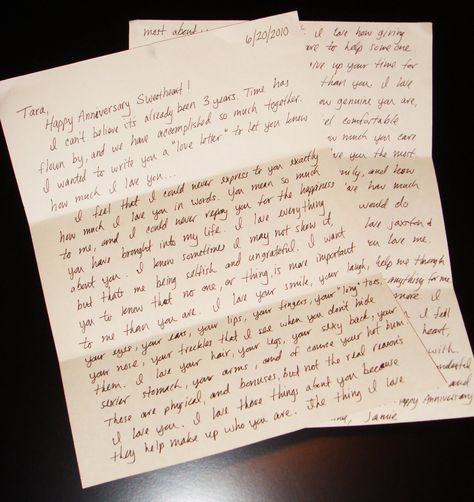 6/20/2010
Tara,
Happy Anniversary Sweetheart!
I can't believe its already been 3 years. Time has
flown by, and we have accomplished so much together.
I wanted to write you a "love letter" to let you know
how much I love you...
I feel that I could never express to you exactly
how much I love you in words. You mean so much
to me, and I could never repay you for the happiness
you have brought into my life. I love everything
about you. I know sometimes I may not show it,
but thats me being selfish and ungrateful. I want
you to know that no one, or thing, is more important
to me than you are. I love your smile, your laugh,
your eyes, your ears, your lips, your fingers, your "long" toes,
your nose, your freckles that I see when you don't hide
them. I love your hair, your legs, your sexy back, your
sexier stomach, your arms, and of course your hot bum.
These are physical, and bonuses, but not the real reasons
I love you. I love those things about you because
they help make up who you are. The thing I love
most about...
I love how giving
are to help someone
give up your time for
than you. I love
ow genuine you are,
el comfortable
ow much you care
ve you the most
mily, and know
ve how much
would do
love Jaxston &
ou love me.
help me through
anything for me
more. I
I feel
heart,
with
and
Happy Anniversary
Jamie